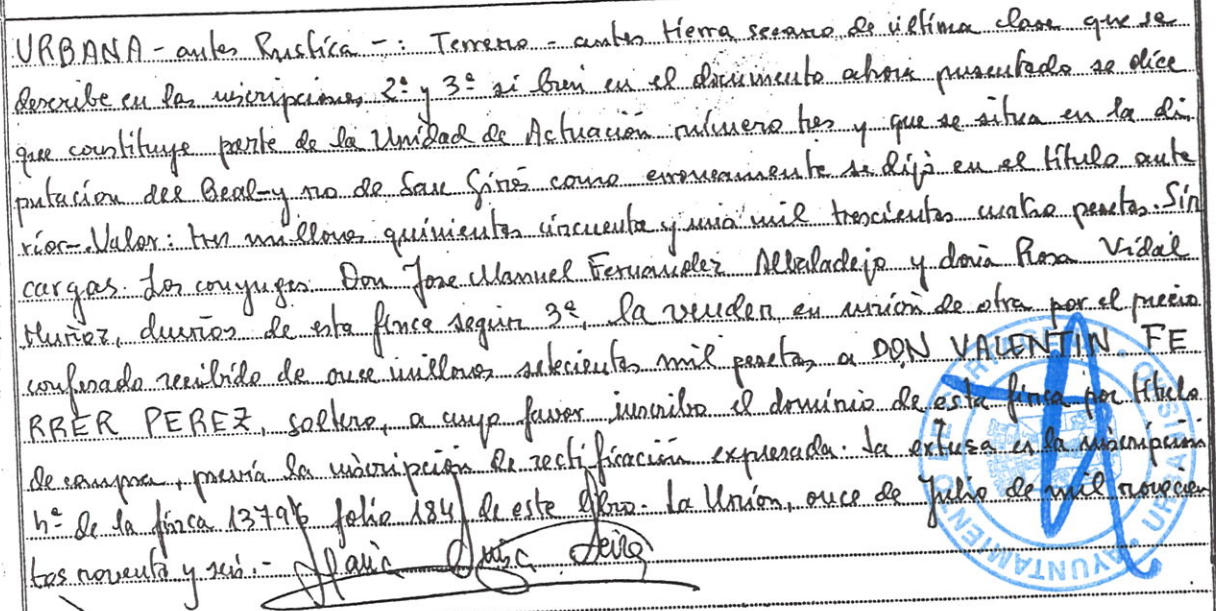 URBANA - antes Rustica -: Terreno - antes tierra secano de última clase que se
describe en las inscripciones 2ª y 3ª si bien en el documento ahora presentado se dice
que constituye parte de la Unidad de Actuación número tres y que se situa en la di
putación del Beal - y no de San Ginés como erroneamente se dijo en el título ante
rior - Valor: tres millones quinientas cincuenta y una mil trescientas cuatro pesetas. Sin
cargas. Los conyuges Don Jose Manuel Fernandez Albaladejo y doña Rosa Vidal
Muñoz, dueños de esta finca según 3ª, la venden en unión de otra por el precio
confesado recibido de once millones setecientas mil pesetas a DON VALENTIN FE
RRER PEREZ, soltero, a cuyo favor inscribo el dominio de esta finca por título
de compra, previa la inscripción de rectificación expresada. La extensa es la inscripción
4ª de la finca folio 184 de este libro. La Unión, once de Julio de mil novecien
tos noventa y seis.-
AYUNTAMIENTO DE